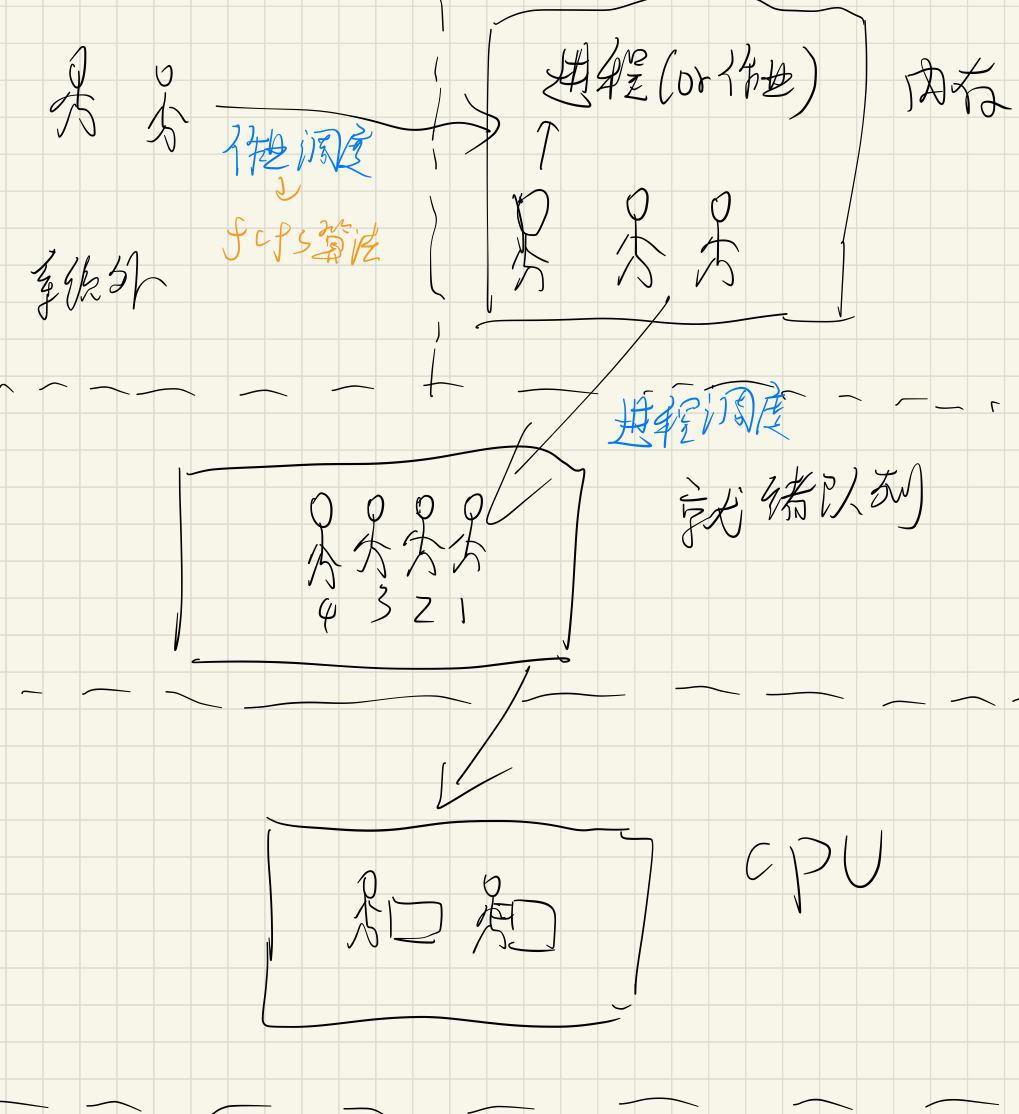 进程(or作业)
内存
作业调度
↓
fcfs算法
系统外
进程调度
就绪队列
4 3 2 1
CPU